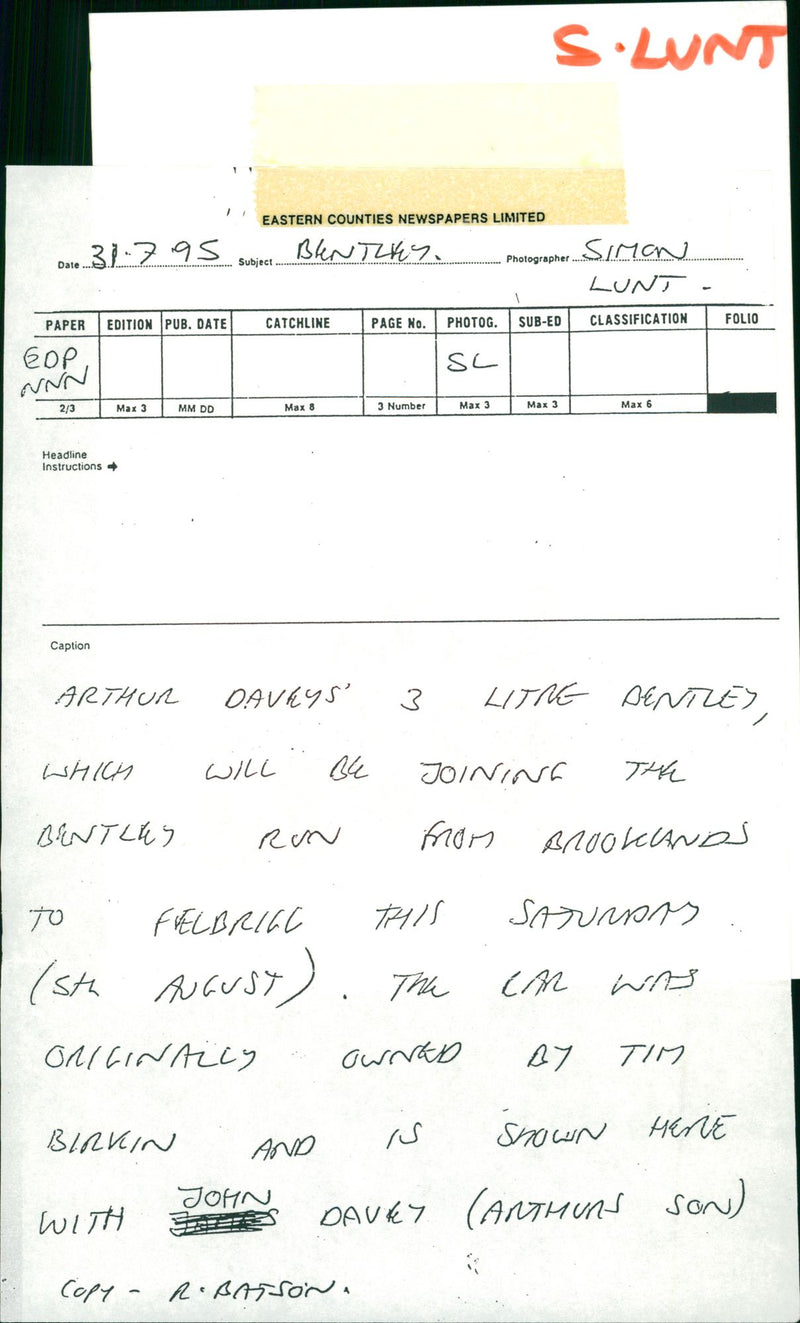 S. LUNT
EASTERN COUNTIES NEWSPAPERS LIMITED
Date 31.7.95 Subject BENTLEY. Photographer SIMON
LUNT -
PAPER EDITION PUB. DATE CATCHLINE PAGE No. PHOTOG. SUB-ED CLASSIFICATION FOLIO
EDP
NNN SL
2/3 Max 3 MM DD Max 8 3 Number Max 3 Max 3 Max 6
Headline
Instructions ➔
Caption
ARTHUR DAVEYS' 3 LITRE BENTLEY,
WHICH WILL BE JOINING THE
BENTLEY RUN FROM BROOKLANDS
TO FELBRIGG THIS SATURDAY
(5th AUGUST). THE CAR WAS
ORIGINALLY OWNED BY TIM
BIRKIN AND IS SHOWN HERE
WITH JOHN DAVEY (ARTHURS SON)
COPY - R. BATSON.